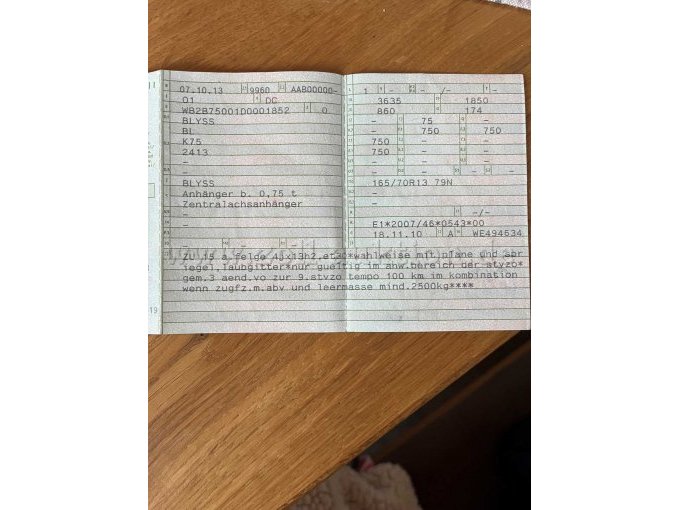 07.10.13 9960 AAB00000-
01 DC
WB2B75001D0001852 0
BLYSS
BL
K75
2413
-
-
BLYSS
Anhänger b. 0,75 t
Zentralachsanhänger
-
-
-
1 - - /- -
3635 1850
860 174
- 75 -
- 750 750
750 - -
750 - -
- - -
165/70R13 79N
-
- -/-
E1*2007/46*0543*00
18.11.10 A WE494534
ZU 15 a.felge 4jx13h2,et30*wahlweise mit plane und spr
iegel,laubgitter*nur gueltig im anw.bereich der stvzo*
gem.3 aend.vo zur 9.stvzo tempo 100 km im kombination
wenn zugfz.m.abv und leermasse mind.2500kg****
19